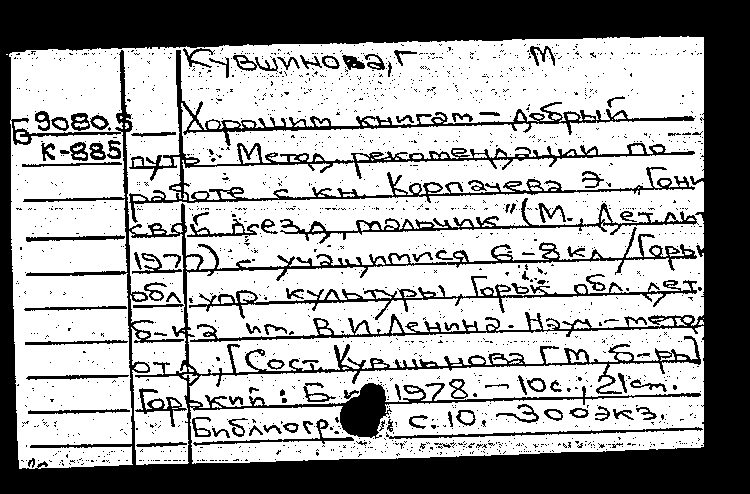 Кувшинова, Г М
Б 9080.5 Хорошим книгам – добрый
К-885 путь: Метод. рекомендации по
работе с кн. Корпачева Э. „Гони
свой поезд, мальчик" (М., Дет.лит
1977) с учащимися 6-8 кл / Горьк
обл. упр. культуры, Горьк обл. дет.
б-ка им. В.И.Ленина. Науч.-метод
отд.; [Сост. Кувшинова Г.М. б-рь]
Горький: Б. 1978. – 10с.; 21см.
Библиогр. с. 10. – 300экз.